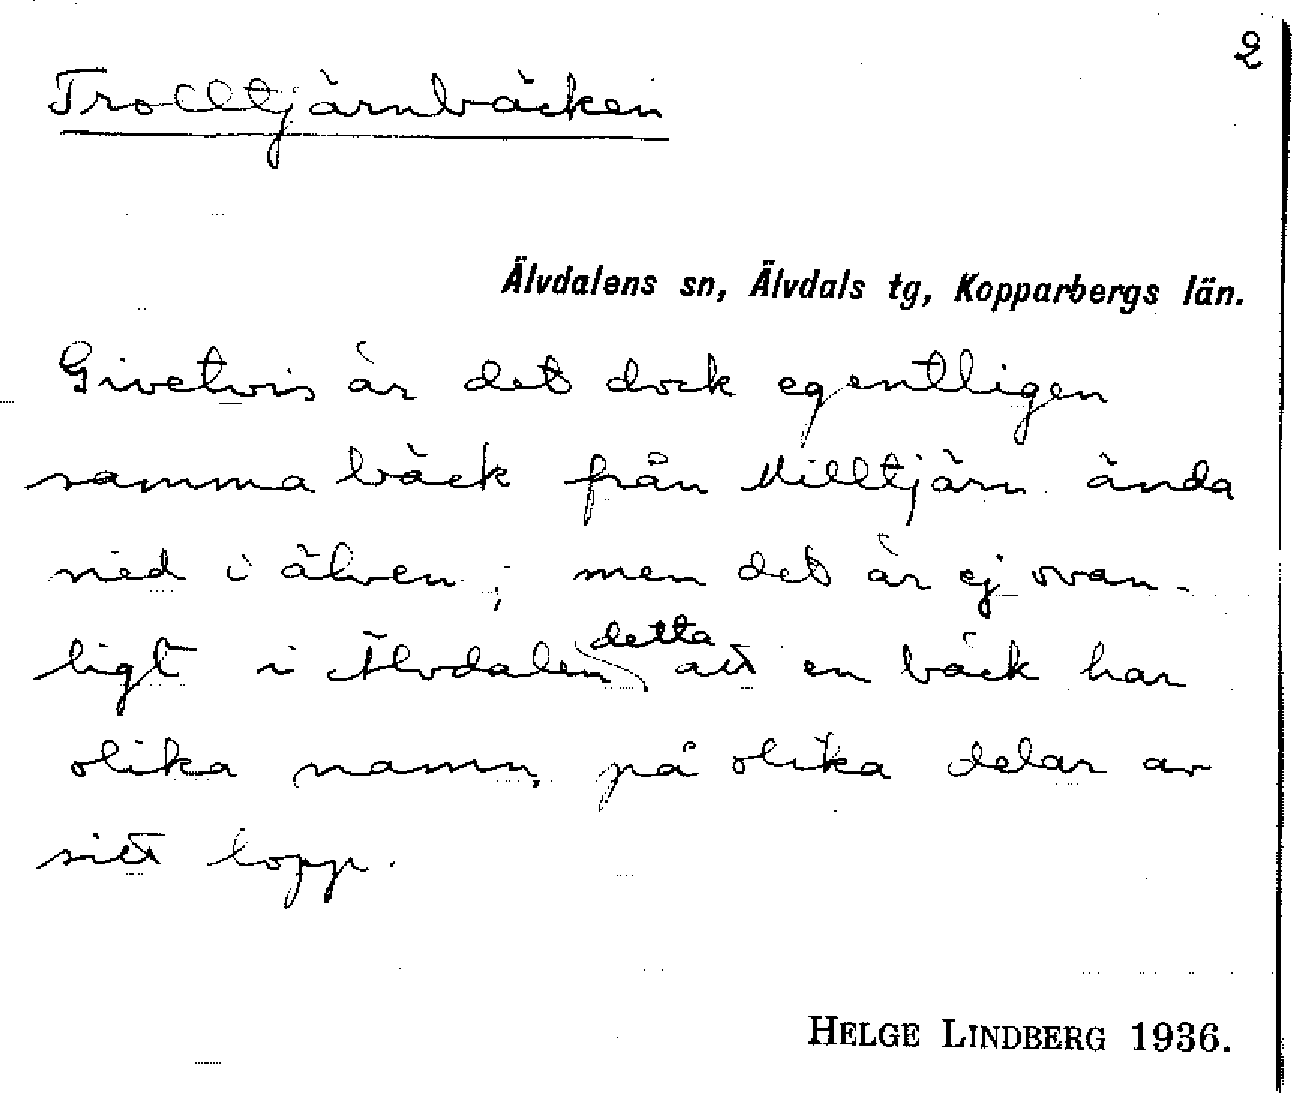 2
Trolltjärnbäcken
Älvdalens sn, Älvdals tg, Kopparbergs län.
Givetvis är det dock egentligen
samma bäck från Milltjärn ända
ned i älven; men det är ej ovan-
ligt i Älvdalen detta att en bäck har
olika namn, på olika delar av
sitt lopp.
HELGE LINDBERG 1936.